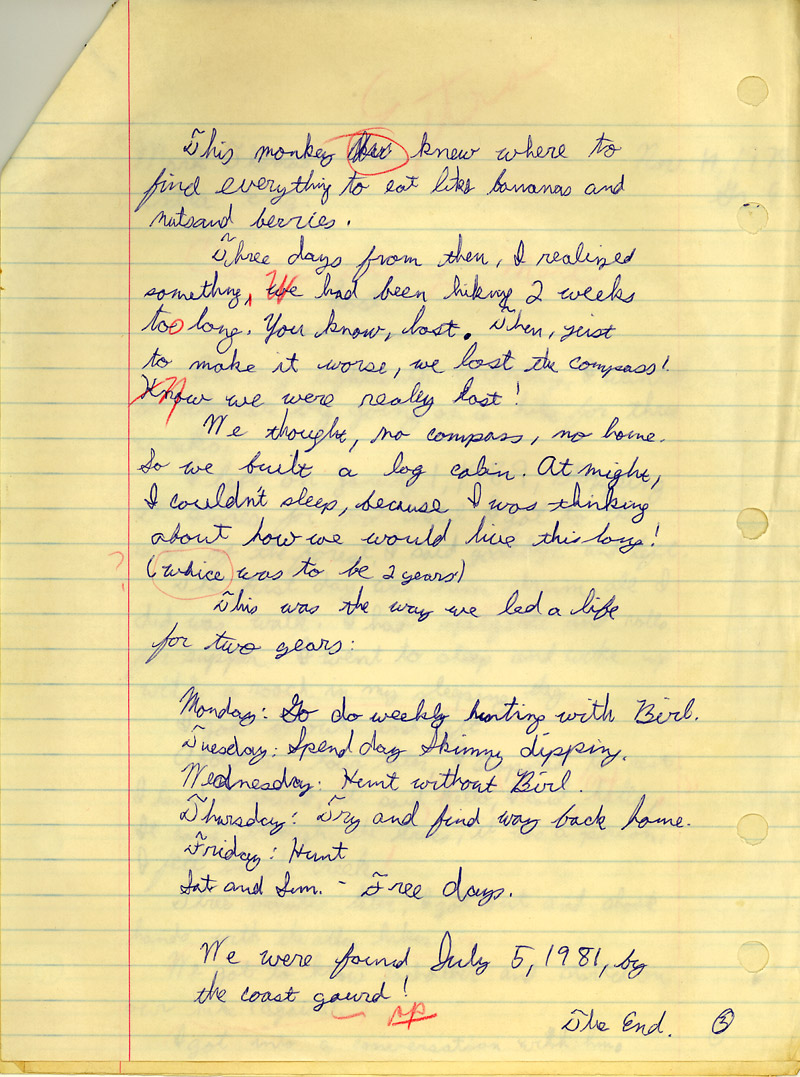 This monkey knew where to
find everything to eat like bananas and
nutsand berries.
Three days from then, I realized
something, We had been hiking 2 weeks
too long. You know, lost. Then, just
to make it worse, we lost the compass!
Know we were really lost!
We thought, no compass, no home.
So we built a log cabin. At night,
I couldn't sleep, because I was thinking
about how we would live this long!
? (whice was to be 2 years!)
This was the way we led a life
for two years:
Monday: Go do weekly hunting with Birl.
Tuesday: Spend day Skinny dipping.
Wednesday: Hunt without Birl.
Thursday: Try and find way back home.
Friday: Hunt
Sat and Sun. - Free days.
We were found July 5, 1981, by
the coast gaurd!
sp
The End. 3